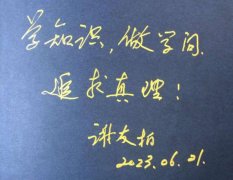 学知识，做学问，
追求真理！
谢友柏
2023.06.01.